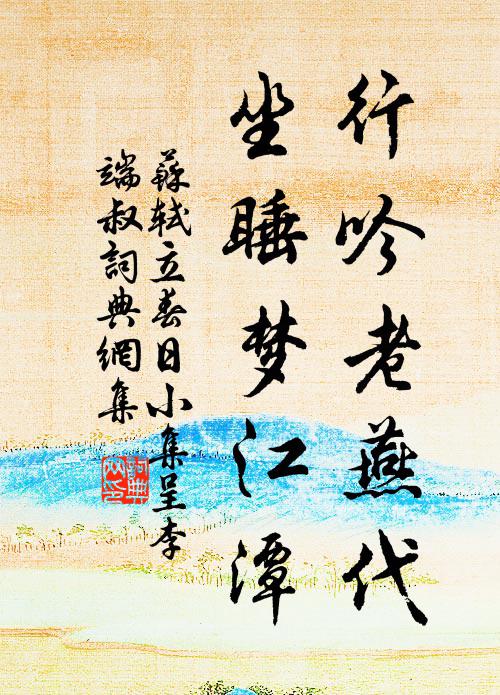 行吟老燕代
坐睡梦江潭
蘇軾立春日小集呈李
端叔詞典網集